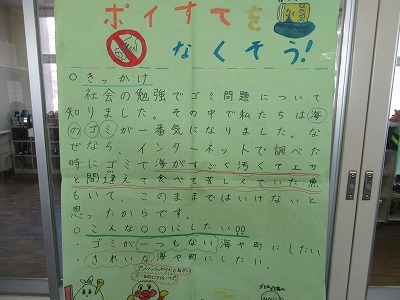 ポイすてを
なくそう!
○きっかけ
社会の勉強でゴミ問題について
知りました。その中で私たちは海
のゴミが一番気になりました。な
ぜなら、インターネットで調べた
時にゴミで海がすごく汚くてエサ
と間違えて食べて苦しんでいた魚
もいて、このままではいけないと
思ったからです。
○こんな○○にしたい!!!
・ゴミが一つもない海や町にしたい
・きれいな海や町にしたい